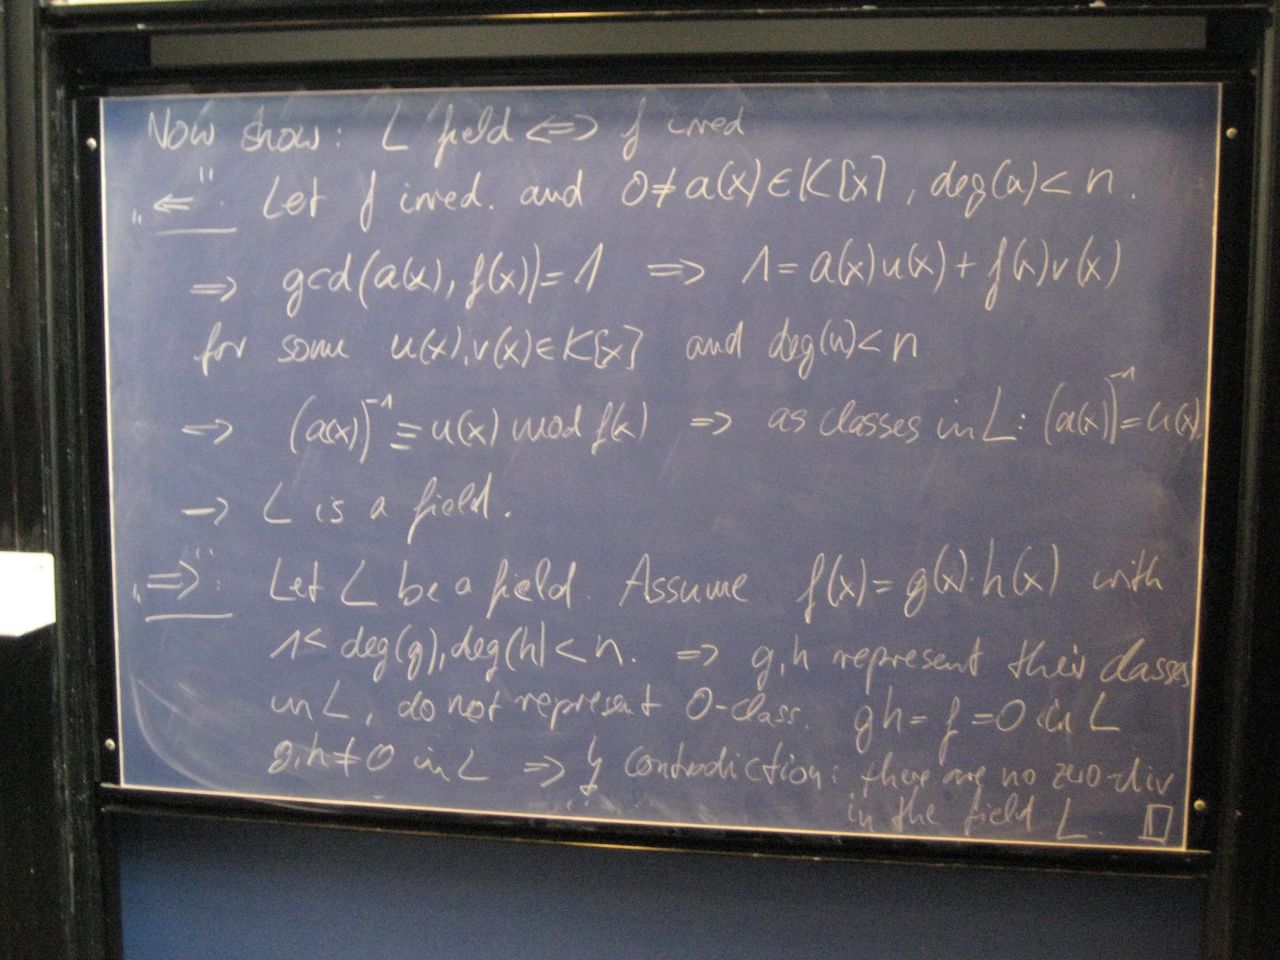 Now show: L field ⟺ f irred.
„⇐“: Let f irred. and 0≠a(x)∈K[x], deg(a)<n.
⇒ gcd(a(x), f(x))=1 ⇒ 1=a(x)u(x)+f(x)v(x)
for some u(x),v(x)∈K[x] and deg(u)<n
⇒ (a(x))⁻¹≡u(x) mod f(x) ⇒ as classes in L: (a(x))⁻¹=u(x).
→ L is a field.
„⇒“: Let L be a field. Assume f(x)=g(x)·h(x) with
1< deg(g),deg(h)<n. ⇒ g,h represent their classes
in L, do not represent 0-class. gh=f=0 in L
g,h≠0 in L ⇒ ↯ contradiction: there are no zero-div
in the field L. □